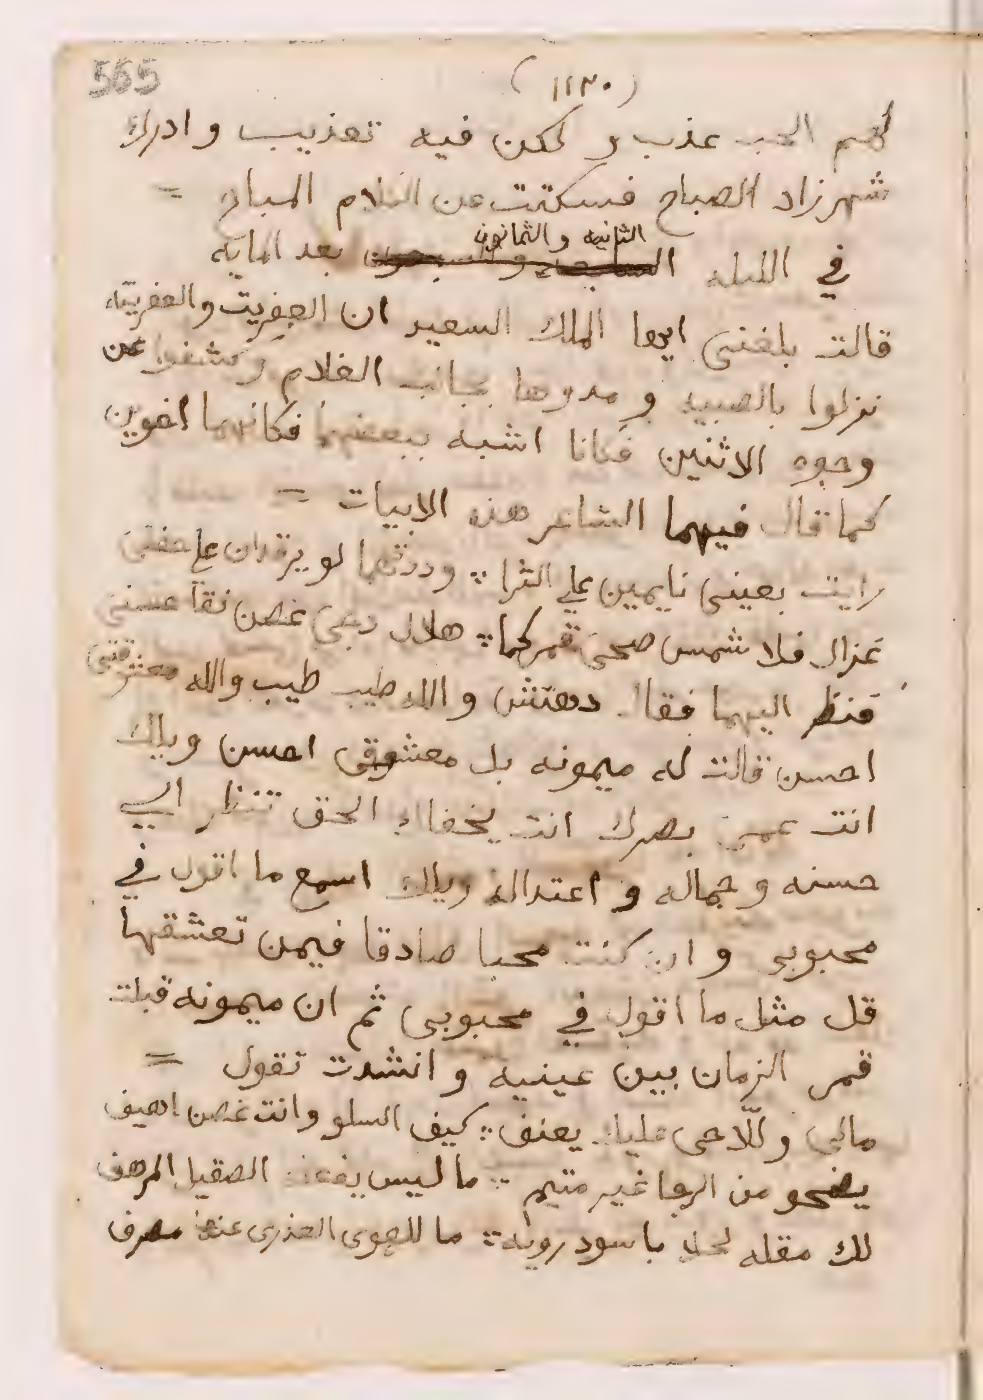 565
(١١٣٠)
نعم الحب عذب ولكن فيه تعذيب وادرك
شهرزاد الصباح فسكتت عن الكلام المباح =
في الليله السابعه والسبعون الثانيه والثمانون بعد المايه
قالت بلغني ايها الملك السعيد ان العفريت والعفريته
نزلوا بالصبيه ومدوها بجانب الغلام وكشفوا عن
وجوه الاثنين فكانا اشبه ببعضهما فكانهما اخوين
كما قال فيهما الشاعر هذه الابيات =
رايت بعيني نايمين علي الثرا ؞ وددتهما لو يرقدان علي جفني
غزال فلا شمس ضحي قمر كما ؞ هلال دجي غصن نقا
فنظر اليهما فقال دهنش والله طيب طيب والله معشوقتي
احسن قالت له ميمونه بل معشوقي احسن ويلك
انت عمي بصرك انت يخفاك الحق تنظر الي
حسنه وجماله واعتداله ويلك اسمع ما اقول في
محبوبي وان كنت محبا صادقا فيمن تعشقها
قل مثل ما اقول في محبوبي ثم ان ميمونه قبلت
قمر الزمان بين عينيه وانشدت تقول =
مالي وللّاحي عليك يعنف ؞ كيف السلو وانت غصن اهيف
من غير متيم ؞ ما ليس يفعله الصقيل المرهف
لك مقله كحلا ؞ ما للهوي العذري عنها مصرف